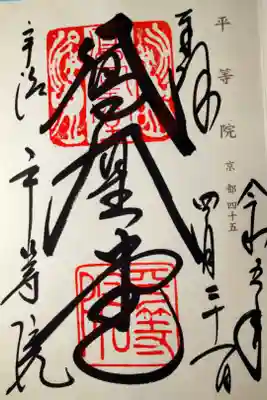 平等院 京都四十五
令和五年
四月二十一日
奉拝
鳳凰堂
宇治 平等院